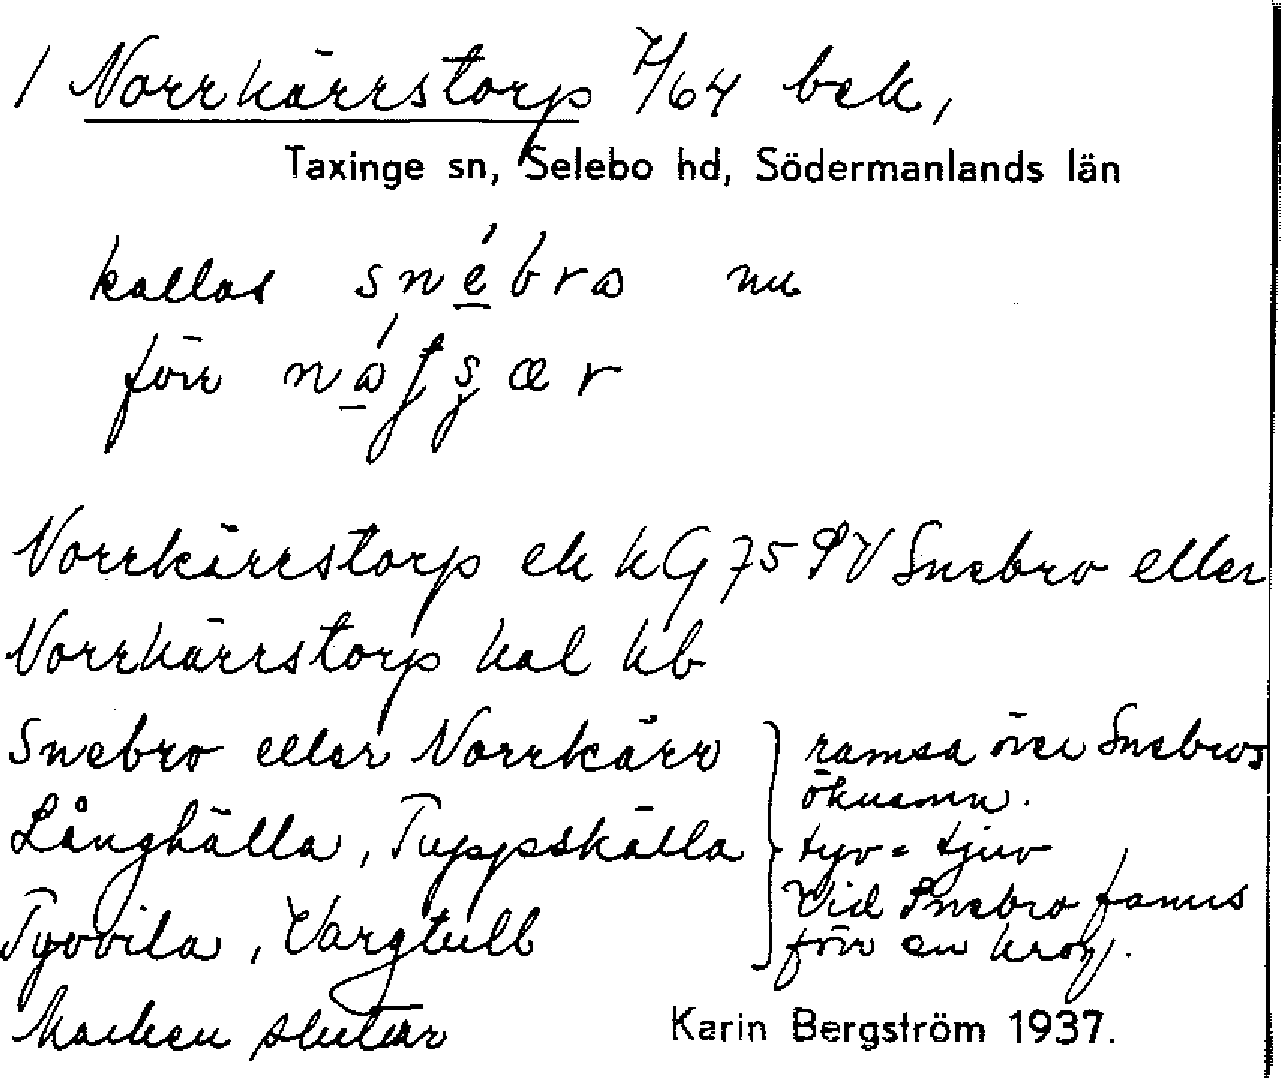 1 Norrkärrstorp 7/64 bek,
Taxinge sn, Selebo hd, Södermanlands län
kallas snebro nu
förr
Norrkärrstorp ek kG 75 PV Snebro eller
Norrkärrstorp kal kb
Snebro eller Norrkärr
Långhälla, Tuppskälla
Tyvvila, Vargtull
Marken slutar
ramsa över Snebros
öknamn.
tyv = tjuv
Vid Snebro fanns
förr en krog.
Karin Bergström 1937.